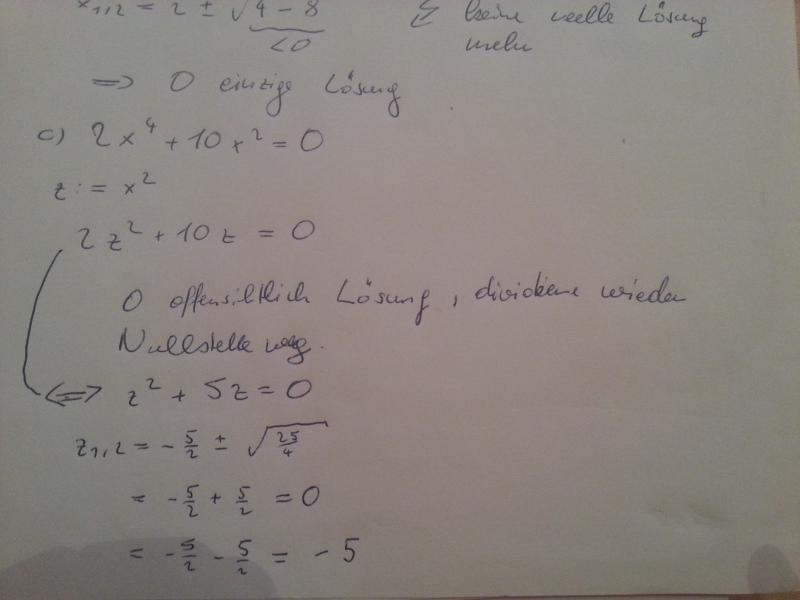 x1,2 = 2 ± √(4 - 8) keine reelle Lösung
<0 mehr
⇒ 0 einzige Lösung
c) 2x⁴ + 10x² = 0
z := x²
2z² + 10z = 0
0 offensichtlich Lösung, dividiere wieder
Nullstelle weg.
⇔ z² + 5z = 0
z1,2 = - 5/2 ± √(25/4)
= - 5/2 + 5/2 = 0
= - 5/2 - 5/2 = - 5